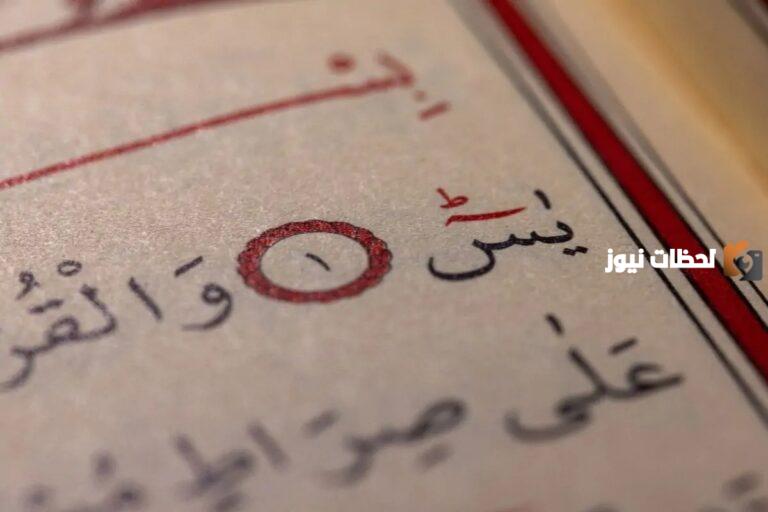 يٰسٓ ١ وَالْقُرْ
عَلٰى صِرَاطٍ
لحظات نيوز